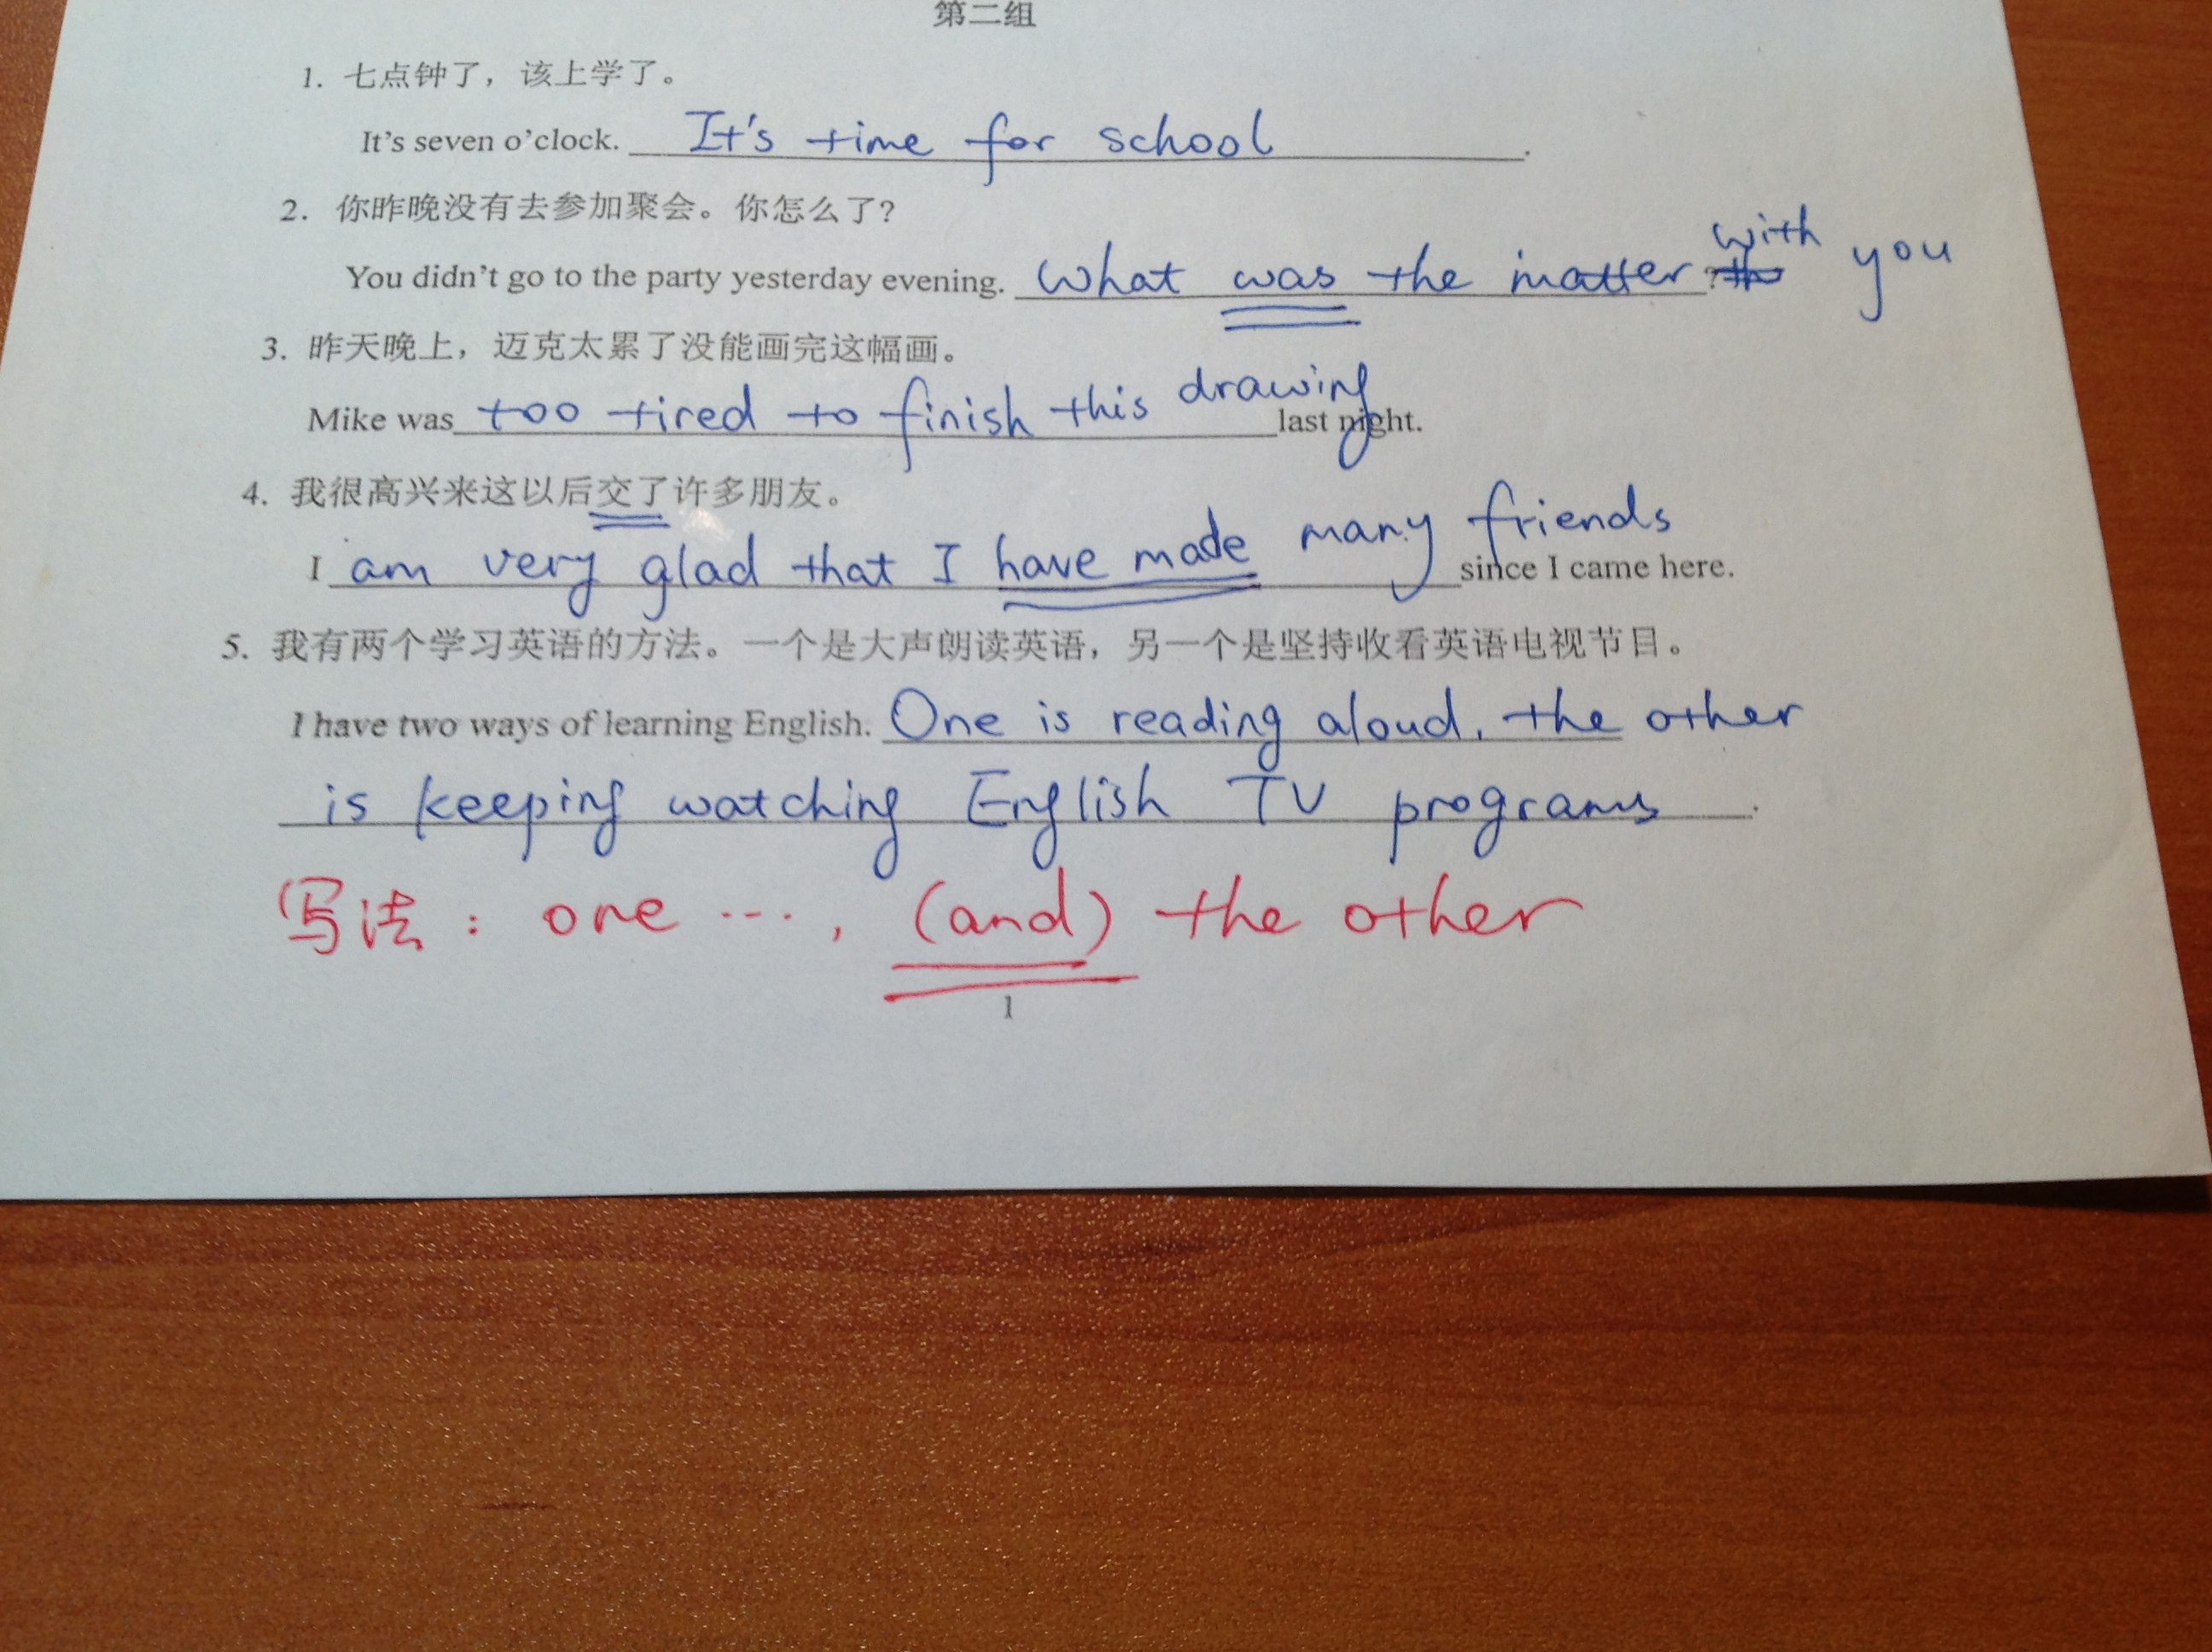 第二组
1. 七点钟了，该上学了。
It's seven o'clock. It's time for school.
2. 你昨晚没有去参加聚会。你怎么了?
You didn't go to the party yesterday evening. What was the matter with you?
3. 昨天晚上，迈克太累了没能画完这幅画。
Mike was too tired to finish this drawing last night.
4. 我很高兴来这以后交了许多朋友。
I am very glad that I have made many friends since I came here.
5. 我有两个学习英语的方法。一个是大声朗读英语，另一个是坚持收看英语电视节目。
I have two ways of learning English. One is reading aloud, the other
is keeping watching English TV programs.
写法: one ..., (and) the other
1